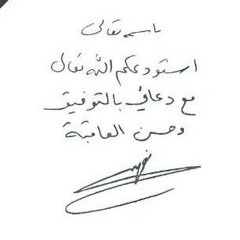 باسمه تعالى
استودعكم الله تعالى
مع دعائي بالتوفيق
وحسن العاقبة